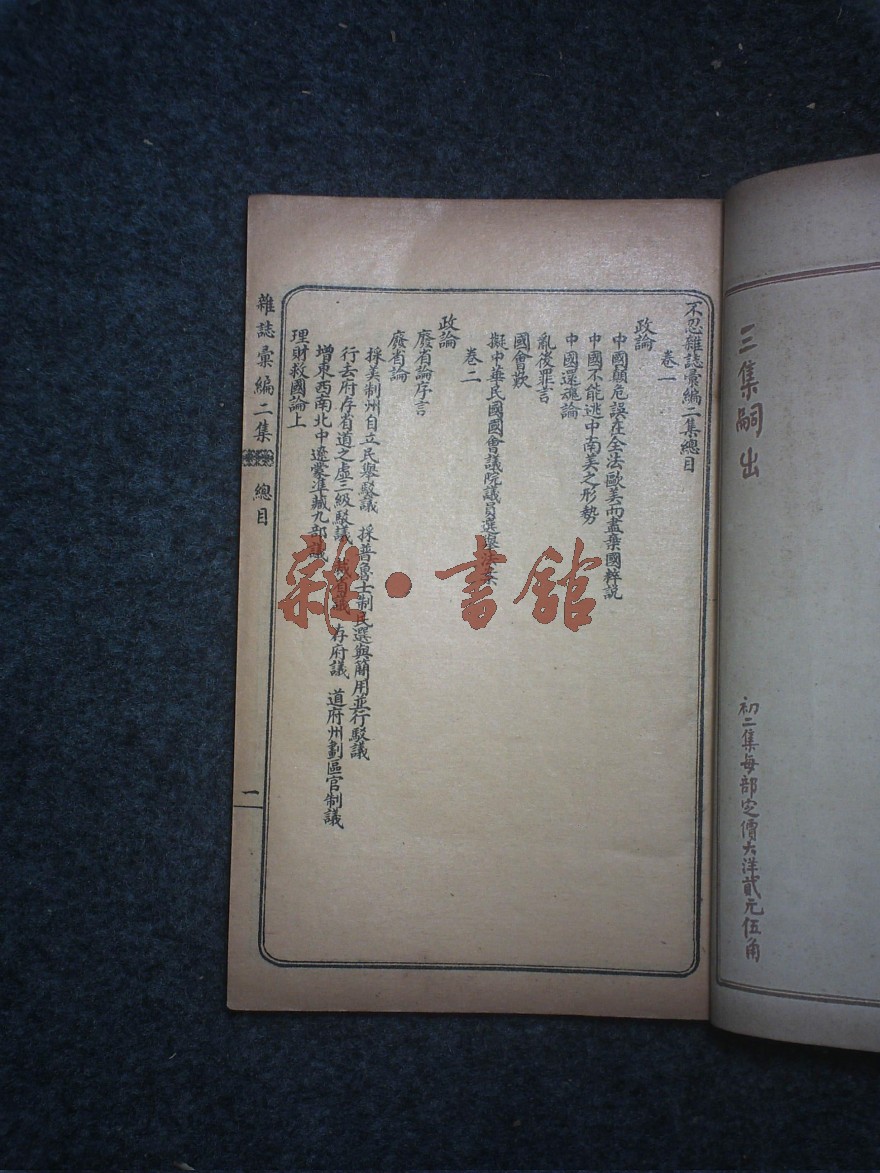 三集嗣出
初二集每部定價大洋貳元伍角
不忍雜誌彙編二集總目
卷一
政論
中國顛危誤在全法歐美而盡棄國粹說
中國不能逃中南美之形勢
中國還魂論
亂後罪言
國會歎
擬中華民國國會議院議員選舉法案
卷二
政論
廢省論序言
廢省論
採美制州自立民舉駁議 採普魯士制民選與簡用並行駁議
行去府存省道之虛三級駁議 存府議
增東西南北中遼蒙準藏九部議 道府州劃區官制議
理財救國論上
雜誌彙編二集 總目 一
雜·書館